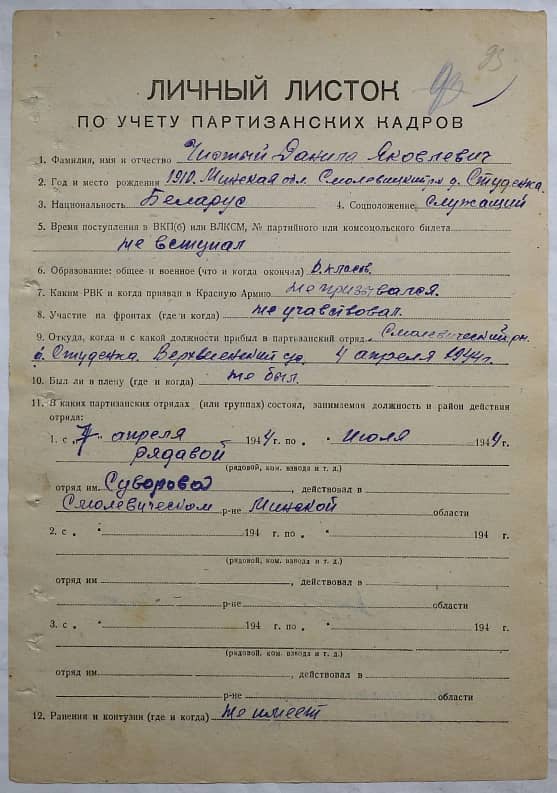 93
ЛИЧНЫЙ ЛИСТОК
ПО УЧЕТУ ПАРТИЗАНСКИХ КАДРОВ
1. Фамилия, имя и отчество Чистый Данила Яковлевич
2. Год и место рождения 1910. Минская обл. Смолевицкий рн д. Студенка.
3. Национальность Беларус 4. Соцположение служащий
5. Время поступления в ВКП(б) или ВЛКСМ, № партийного или комсомольского билета
не вступал
6. Образование: общее и военное (что и когда окончил) 6. класов.
7. Каким РВК и когда призван в Красную Армию не призывался.
8. Участие на фронтах (где и когда) не учавствовал.
9. Откуда, когда и с какой должности прибыл в партизанский отряд Смолевический рн.
д. Студенка. 4 апреля 1944г.
10. Был ли в плену (где и когда) не был.
11. В каких партизанских отрядах (или группах) состоял, занимаемая должность и район действия
отряда:
1. с „4" апреля 1944 г. по „ " июля 1944 г.
рядавой
(рядовой, ком. взвода и т. д.)
отряд им. Суворова, действовал в
Смолевическом р-не Минской области
2. с „ " 194 г. по „ " 194 г.
(рядовой, ком. взвода и т. д.)
отряд им , действовал в
р-не области
3. с „ " 194 г. по „ " 194 г.
(рядовой, ком. взвода и т. д.)
отряд им. , действовал в
р-не области
12. Ранения и контузии (где и когда) не имеет